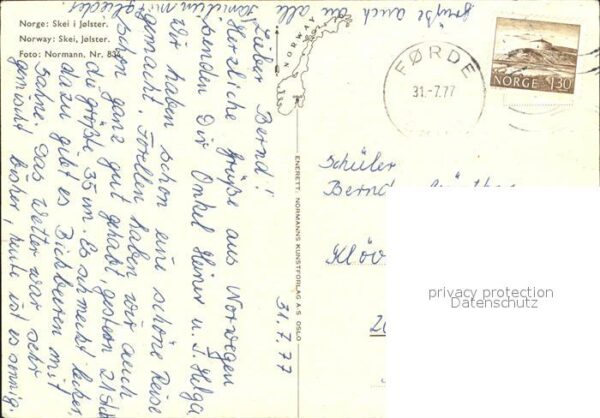 Norge: Skei i Jølster.
Norway: Skei, Jølster.
Foto: Normann, Nr. 834
Lieber Bernd!
Herzliche Grüße aus Norwegen
senden Dir Onkel Heiner u. T. Helga
Wir haben schon eine schöne Reise
gemacht. Forellen haben wir auch
schon ganz gut gehabt, gestern 21 Stck
die größte 35 cm. Es schmeckt lecker,
dazu gibt es Bickbeeren mit
Sahne. Das Wetter war sehr
gemischt bisher, heute ist es sonnig.
Grüße auch an alle
Familienmitglieder
31.7.77
NORWAY
ENERETT: NORMANNS KUNSTFORLAG A.S OSLO
FØRDE
31.-7.77
NORGE 1.30
Schüler
Bernd
Klöv
privacy protection
Datenschutz